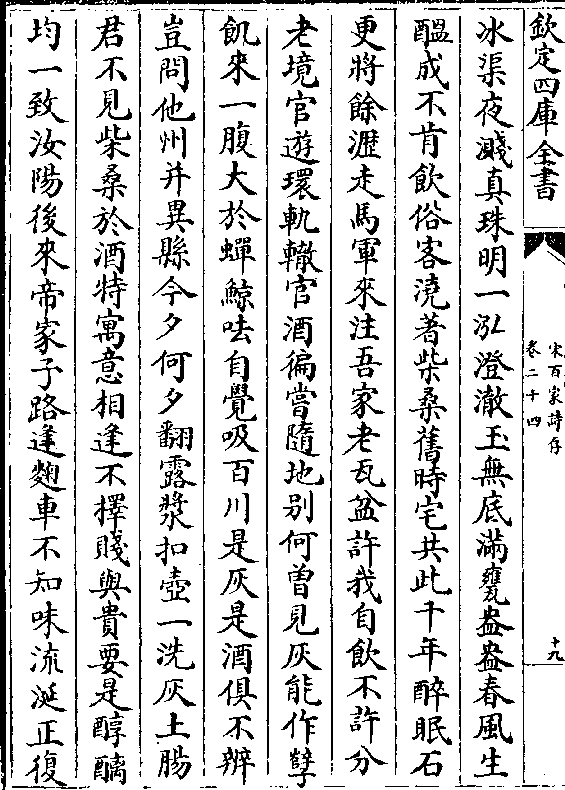 欽定四庫全書
宋百家詩存
卷二十四
十九
冰渠夜濺真珠明一泓澄澈玉無底滿甕盎盎春風生
醖成不肯飲俗客澆著柴桑舊時宅共此千年醉眠石
更將餘瀝走馬軍來注吾家老瓦盆許我自飲不許分
老境官遊環軌轍官酒徧嘗隨地别何曾見灰能作孽
飢來一腹大於蟬鯨呿自覺吸百川是灰是酒俱不辨
豈問他州并異縣今夕何夕翻露漿扣壺一洗灰土腸
君不見柴桑於酒特寓意相逢不擇賤與貴要是醇醨
均一致汝陽後來帝家子路逢麴車不知味流涎正復